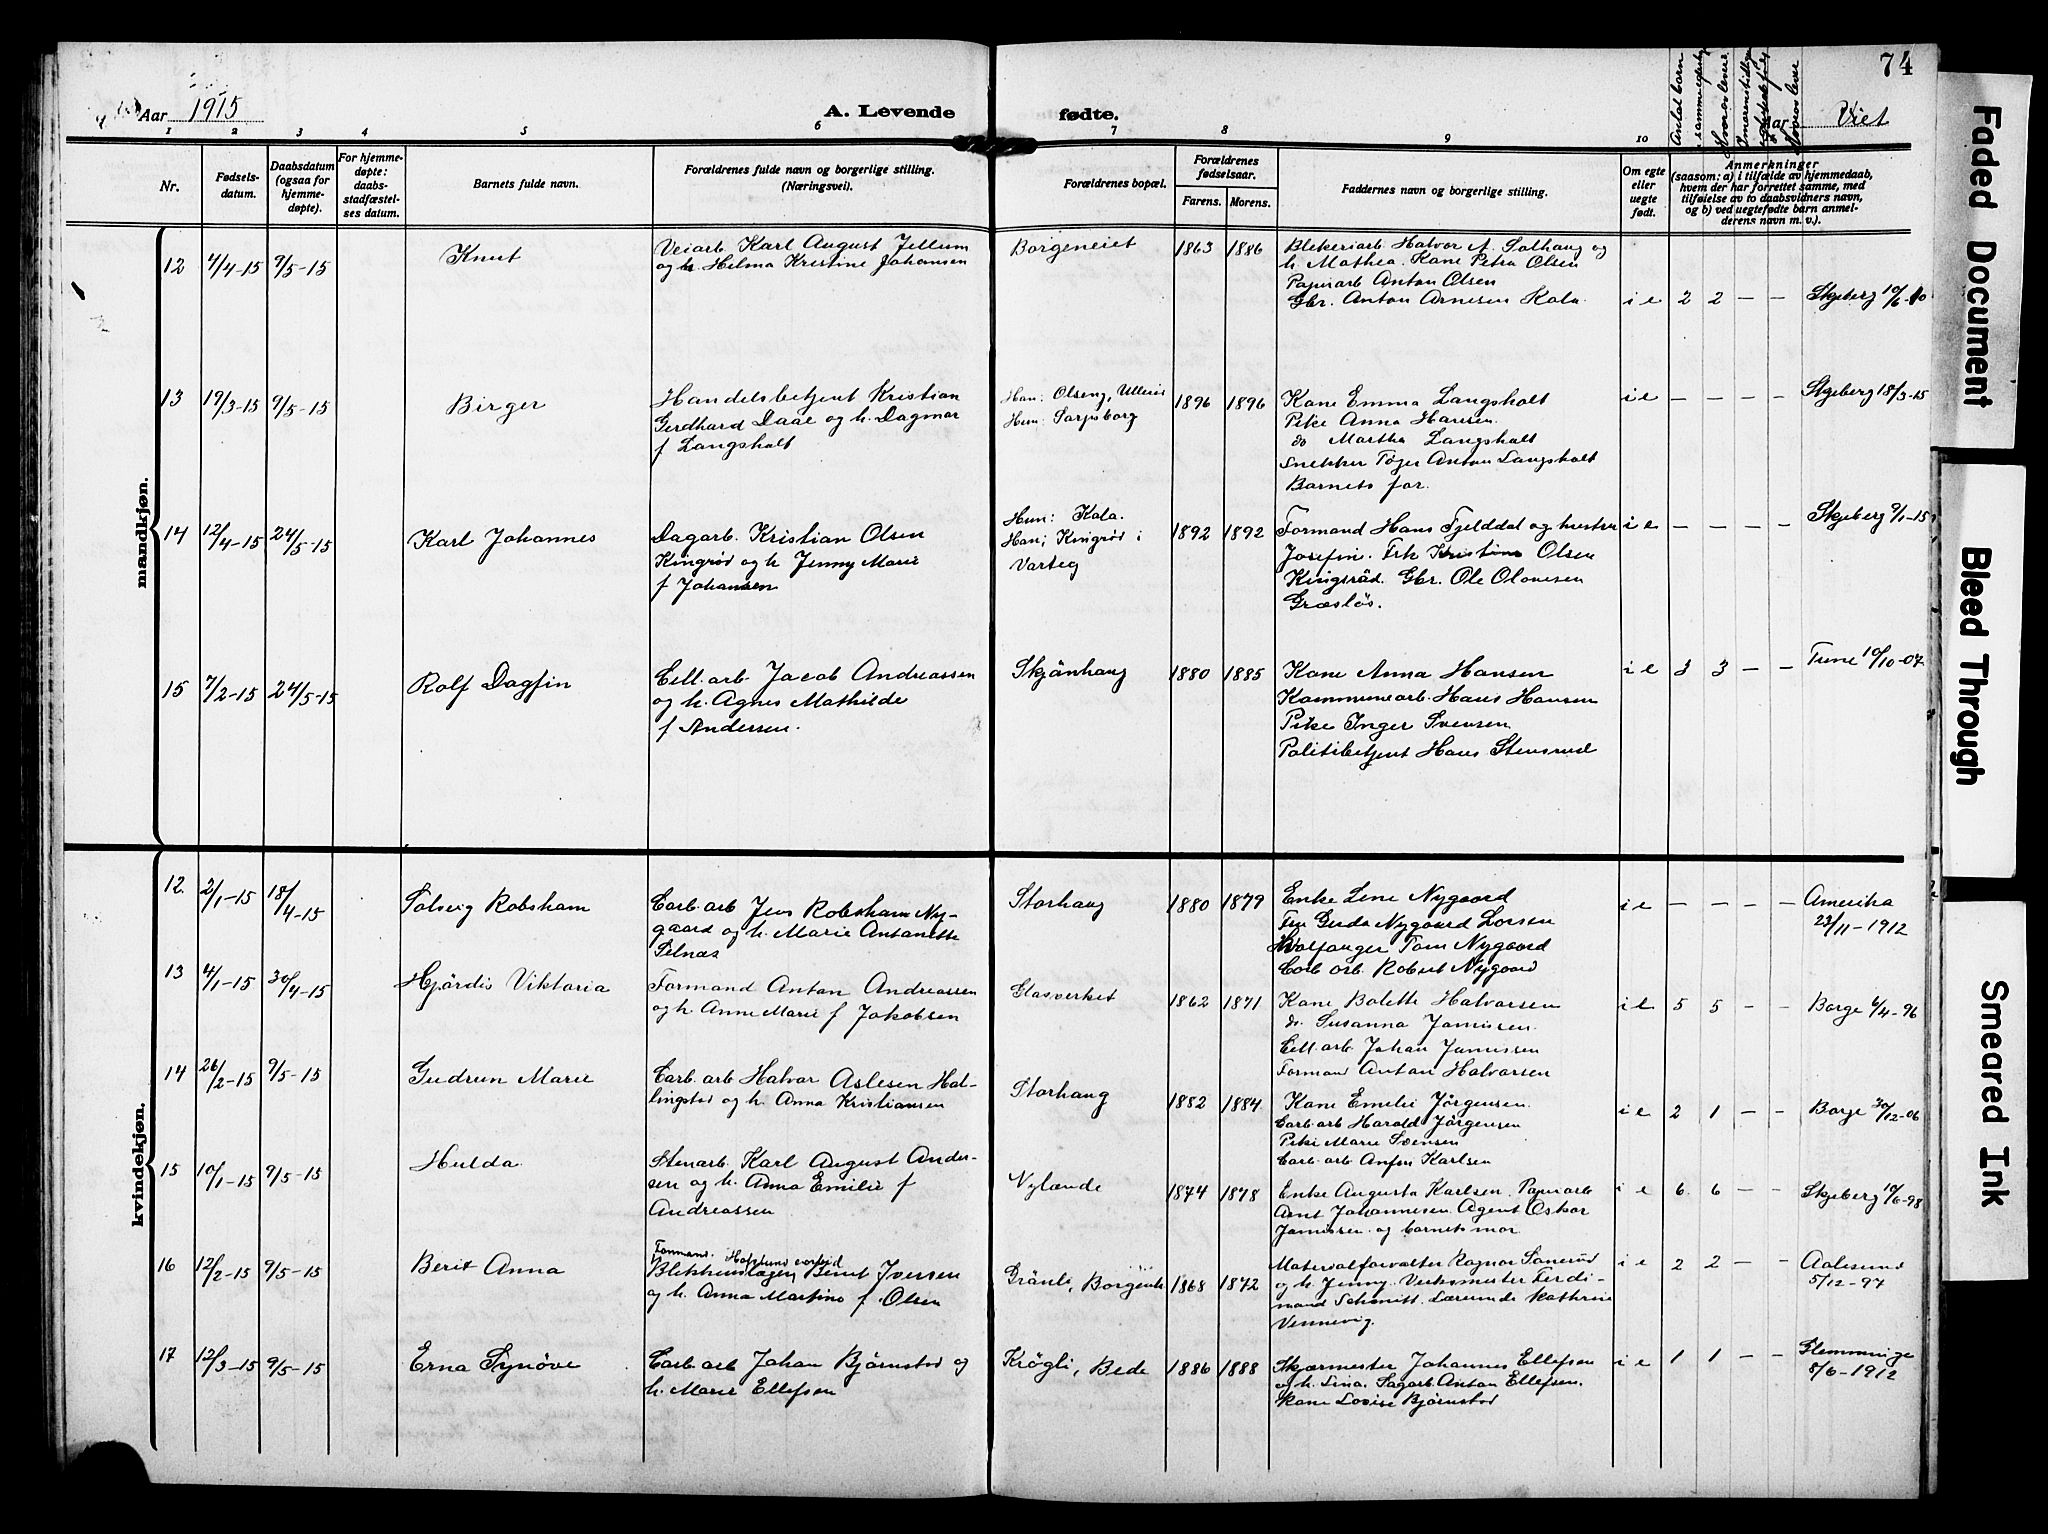 74
Aar 1915
A. Levende fødte.
Aar Viet
Antal barn
1 2 3 4 5 6 7 8 9 10
Nr.
Fødsels-
datum.
Daabsdatum
(ogsaa for
hjemme-
døpte).
For hjemme-
døpte:
daabs-
stadfæstel-
ses datum.
Barnets fulde navn.
Forældrenes fulde navn og borgerlige stilling.
(Næringsvei).
Forældrenes bopæl.
Forældrenes
fødselsaar.
Farens. Morens.
Faddernes navn og borgerlige stilling.
Om egte
eller
uegte
født.
Anmerkninger
(saasom: a) i tilfælde av hjemmedaab,
hvem der har forrettet samme, med
tilføielse av to daabsvidners navn,
og b) ved uegtefødte barn anmel-
derens navn m. v.).
mandkjøn.
12 4/4-15 9/5-15 Knut
Veiarb. Karl August Jellum
og h. Helma Kristine Johansen
Borgeneiet 1863 1886
Blekeriarb Halvor A. Solhaug og
h. Mathea. Kone Petra Olsen
Papirarb Anton Olsen
Gbr. Anton Arnesen Kala
i e 2 2 — — Skjeberg 10/6-10
13 19/3-15 9/5-15 Birger
Handelsbetjent Kristian
Gerdhard Daae og h. Dagmar
f Langsholt
Han: Olseng, Ullerøi
Hun: Sarpsborg
1896 1896
Kone Emma Langsholt
Pike Anna Hansen
do Martha Langsholt
Snekker Tøger Anton Langsholt
Barnets far.
i e — — — — Skjeberg 18/3-15
14 12/4-15 24/5-15 Karl Johannes
Dagarb. Kristian Olsen
Kingrød og h Jenny Marie
f Johansen
Hun: Kala.
Han; Kingrød i
Varteg
1892 1892
Formand Hans Fjelddal og hustru
Josefin. Frk Kristine Olsen
Kingsrød. Gbr. Ole Olavesen
Græsløs.
i e — — — — Skjeberg 9/1-15
15 7/2-15 24/5-15 Rolf Dagfin
Cell. arb. Jacob Andreassen
og h. Agnes Mathilde
f Andersen.
Skjønhaug 1880 1885
Kone Anna Hansen
Kommunearb. Hans Hansen
Pike Inger Svensen
Politibetjent Hans Stensrud
i e 3 3 — — Tune 19/10-07
kvindekjøn.
12. 2/1-15 18/4-15 Solveig Robsham
Carb. arb Jens Robsham Ny-
gaard og h. Marie Antonette
Pelnæs
Storhaug 1880 1879
Enke Lene Nygaard
Fru Gerda Nygaard Larsen
Hvalfanger Tom Nygaard
Carb arb. Robert Nygaard
i e — — — — Amerika
23/11-1912
13 4/1-15 30/4-15 Hjørdis Viktoria
Formand Anton Andreassen
og h. Anne Marie f Jakobsen
Glasverket 1862 1871
Kone Bolette Halvorsen
do. Susanna Jamissen.
Cell. arb. Johan Jamissen
Formand Anton Halvorsen
i e 5 5 — — Borge 6/4-96
14 26/2-15 9/5-15 Gudrun Marie
Carb. arb Halvor Aslesen Hal-
lingstad og h. Anna Kristiansen
Storhaug 1882 1884.
Kone Emelie Jørgensen.
Carb. arb Harald Jørgensen
Pike Marie Svensen
Carb. arb Anfin Karlsen
i e 2 1 — — Borge 30/12-06
15 10/1-15 9/5-15 Hulda
Stenarb. Karl August Ander-
sen og h. Anna Emilie f
Andreassen
Nylænde 1874 1878
Enke Augusta Karlsen. Papirarb
Arnt Johannesen. Agent Oskar
Jamissen. og barnets mor
i e 6 6 — — Skjeberg
16 12/2-15 9/5-15 Berit Anna
Formand. Hafslund
Bernt Iversen
og h. Anna Martine f. Olsen
Grønli, 1868 1872
Materialforvalter Ragnar Sanerud
og h. Jenny. Verksmester Ferdi-
nand Schmitt. Lærerinde Kathrine
Vennevig.
i e 2 2 — — Aalesund
5/12-97
17 12/3-15 9/5-15 Erna Synøve
Carb. arb Johan Bjørnstad og
h. Marie Ellefsen
Krøgli, Bede 1886 1888
Skjærmester Johannes Ellefsen
og h. Lina. Sagarb. Anton Ellefsen.
Kone Lovise Bjørnstad
i e 1 1 — — Glemminge
8/6-1912
Faded Document
Bleed Through
Smeared Ink